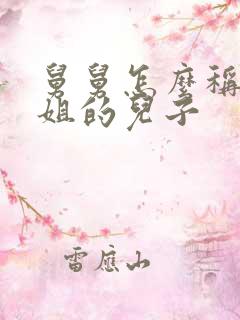 舅舅怎麼稱
姐的兒子
雷應山